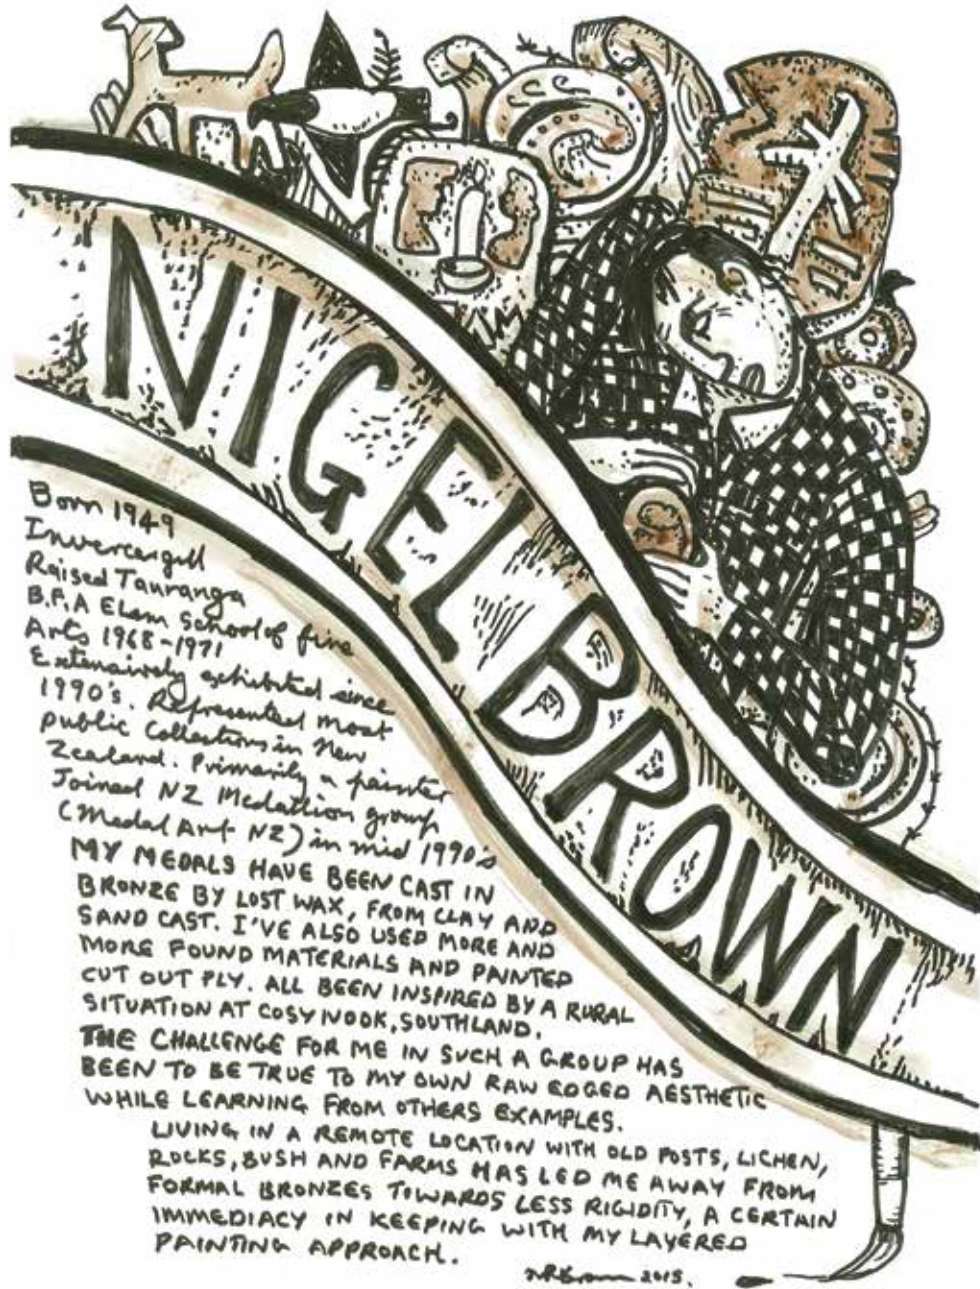 NIGEL BROWN
Born 1949
Invercargill
Raised Tauranga
B.F.A Elam School of fine
Arts 1968-1971
Extensively exhibited since
1990's. Represented most
public Collections in New
Zealand. Primarily a painter
Joined NZ Medallion group
(Medal Art NZ) in mid 1990's
MY MEDALS HAVE BEEN CAST IN
BRONZE BY LOST WAX, FROM CLAY AND
SAND CAST. I'VE ALSO USED MORE AND
MORE FOUND MATERIALS AND PAINTED
CUT OUT PLY. ALL BEEN INSPIRED BY A RURAL
SITUATION AT COSY NOOK, SOUTHLAND.
THE CHALLENGE FOR ME IN SUCH A GROUP HAS
BEEN TO BE TRUE TO MY OWN RAW EDGED AESTHETIC
WHILE LEARNING FROM OTHERS EXAMPLES.
LIVING IN A REMOTE LOCATION WITH OLD POSTS, LICHEN,
ROCKS, BUSH AND FARMS HAS LED ME AWAY FROM
FORMAL BRONZES TOWARDS LESS RIGIDITY, A CERTAIN
IMMEDIACY IN KEEPING WITH MY LAYERED
PAINTING APPROACH.
2015.